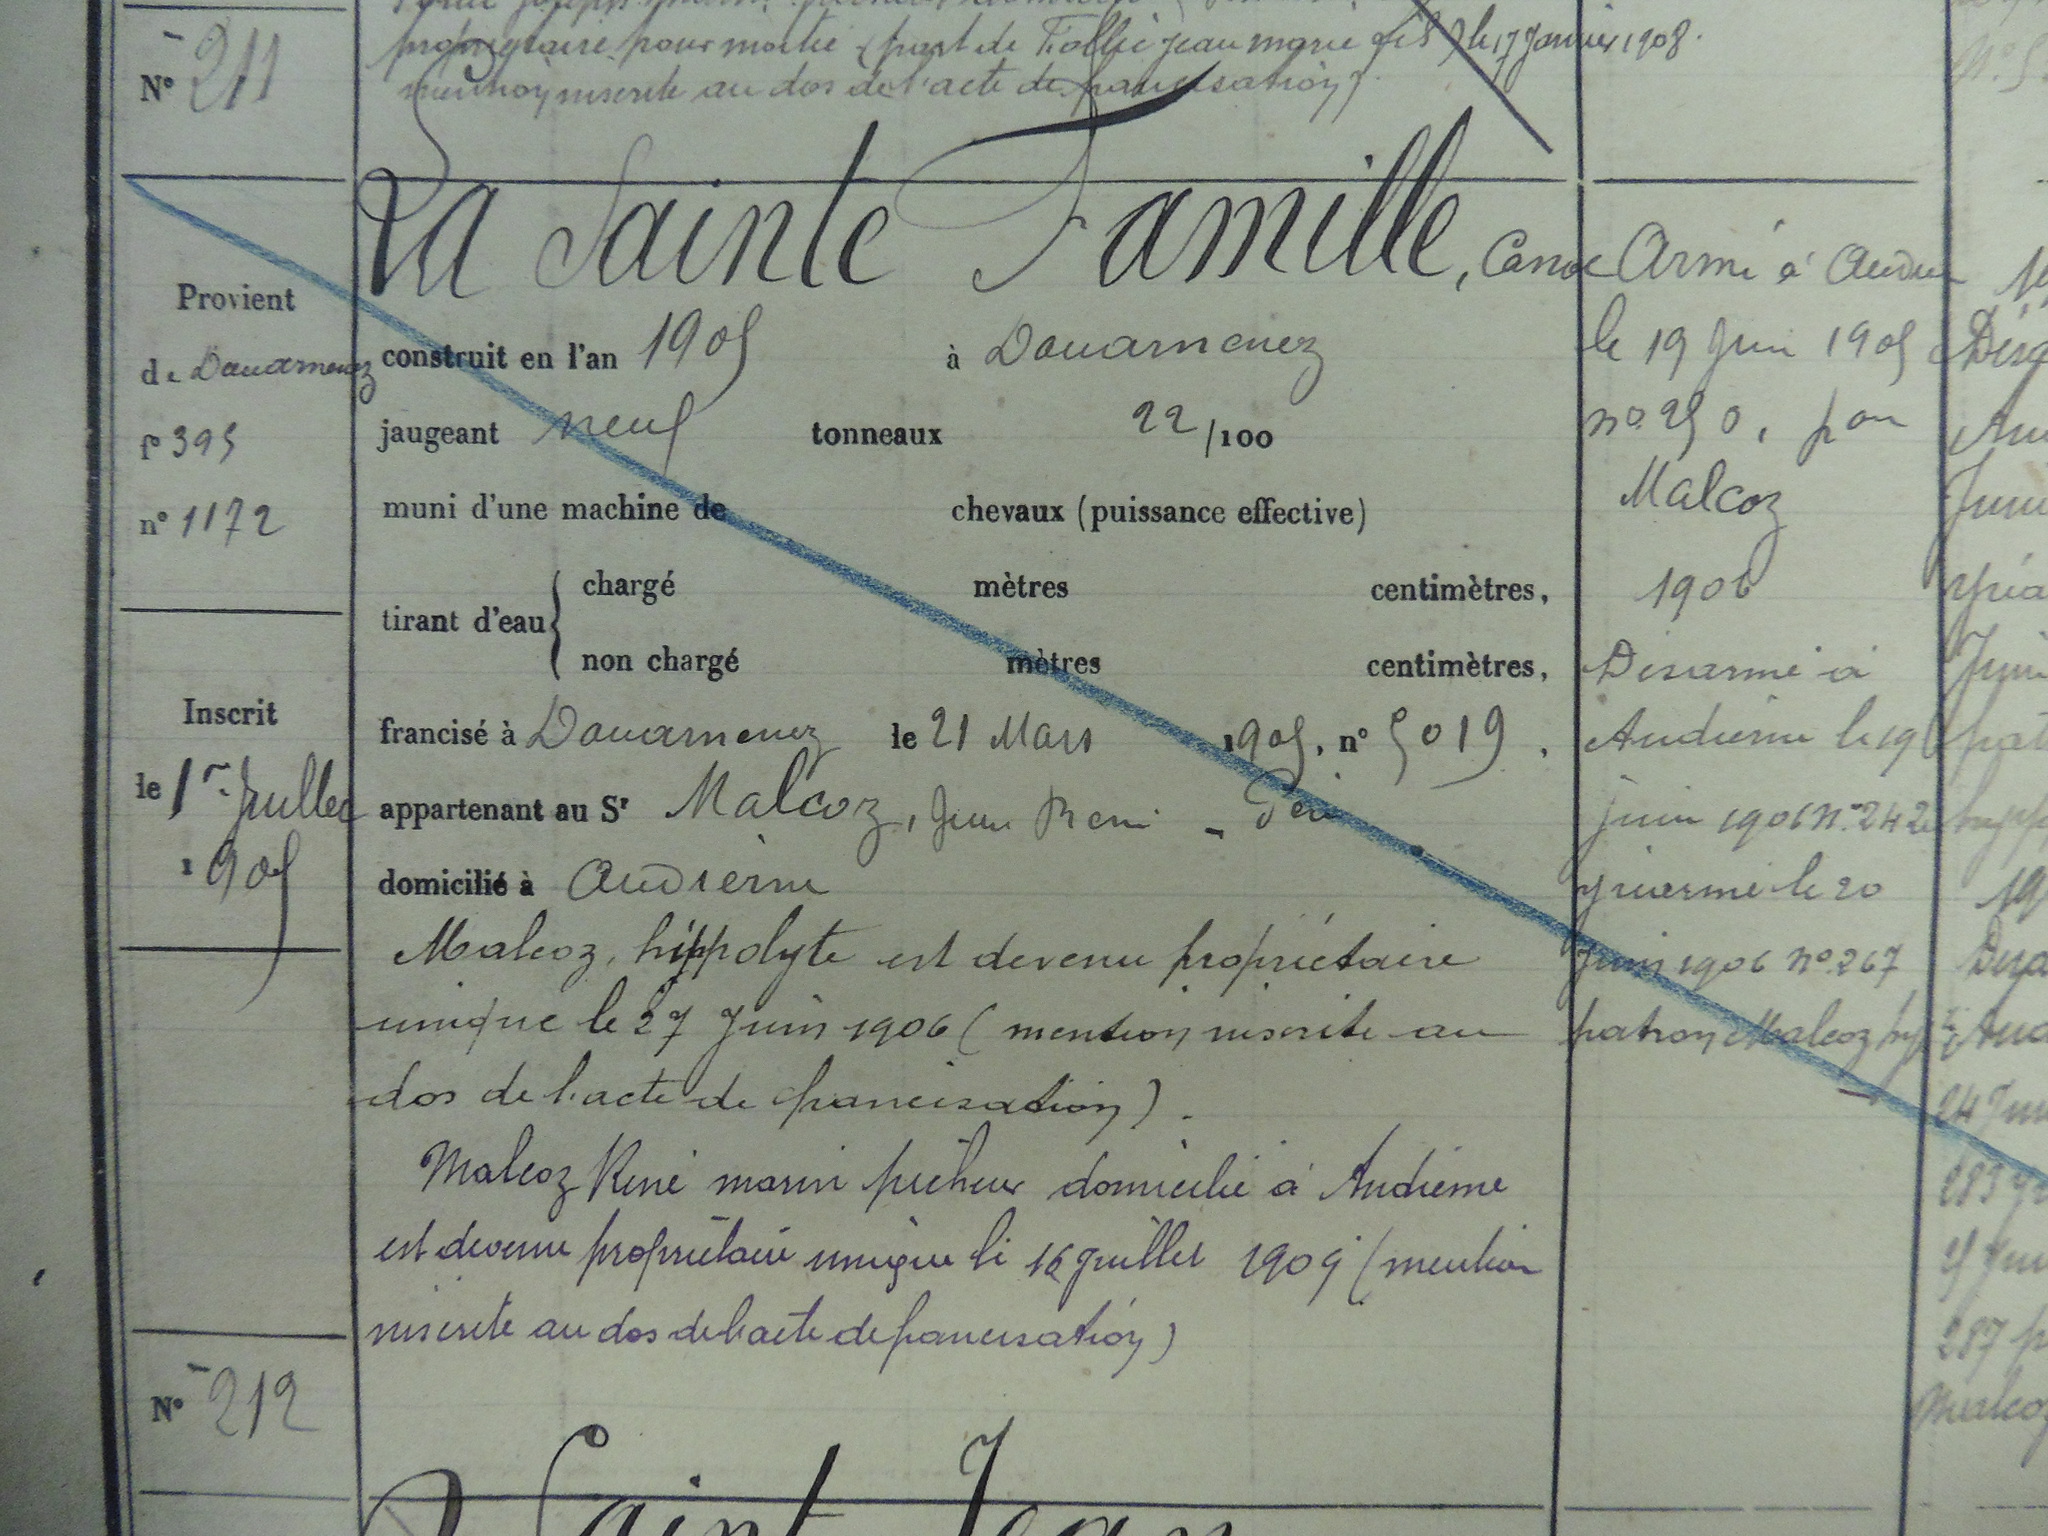 propriétaire pour moitié (part de Follic jean marie fils) le 17 janvier 1908.
mention inscrite au dos de l'acte de francisation).
N° 211
La Sainte Famille, Canot
Provient
de Douarnenez
f° 395
n° 1172
construit en l'an 1905 à Douarnenez
jaugeant neuf tonneaux 22/100
muni d'une machine de chevaux (puissance effective)
tirant d'eau
chargé mètres centimètres,
non chargé mètres centimètres,
Inscrit
le 1er Juillet
1905
francisé à Douarnenez le 21 Mars 1905, n° 5019,
appartenant au Sr Malcoz, Jean René - Père
domicilié à Audierne
Malcoz, hippolyte est devenu propriétaire
unique le 27 Juin 1906 (mention inscrite au
dos de l'acte de francisation).
Malcoz René marin pêcheur domicilié à Audierne
est devenu propriétaire unique le 16 juillet 1909 (mention
inscrite au dos de l'acte de francisation)
Armé à Audierne
le 19 Juin 1905
n° 250, pon
Malcoz
1906
Désarmé à
Audierne le 19
juin 1906 n° 242
réarmé le 20
Juin 1906 n° 267
patron Malcoz hyp
24 Juin
283
287
Malcoz
N° 212
Saint Jean